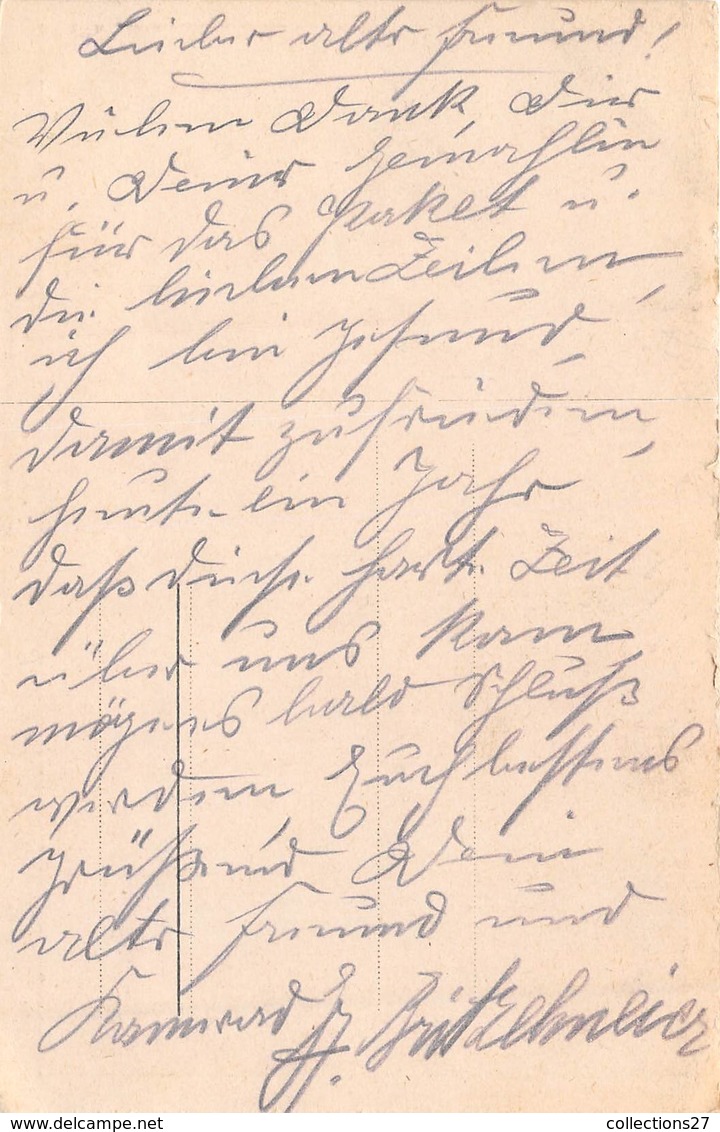 Lieber alter Freund!
Vielen Dank, Dir
u. Deiner Gemahlin
für das Paket u.
die lieben Zeilen,
ich bin gesund,
damit zufrieden,
heute ein Jahr
daß diese harte Zeit
über uns kam
möge es bald Schluß
werden, Euch bestens
grüßend Dein
alter Freund und
Kamerad
collections27